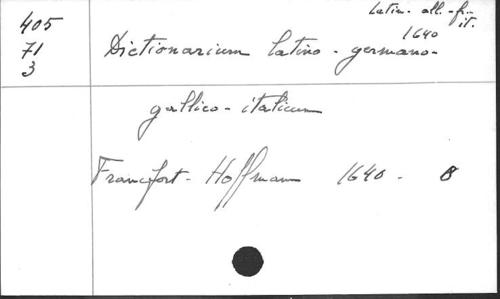 405
71
3
Latin - all. - fr. -
it.
1640
Dictionarium latino - germano -
gallico - italicum
Francfort - Hoffmann 1640 - 8